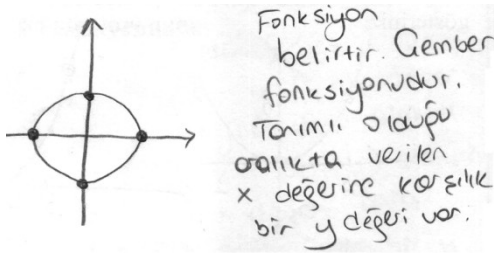 Fonksiyon
belirtir. Çember
fonksiyonudur.
Tanımlı olduğu
aralıkta verilen
x değerine karşılık
bir y değeri var.